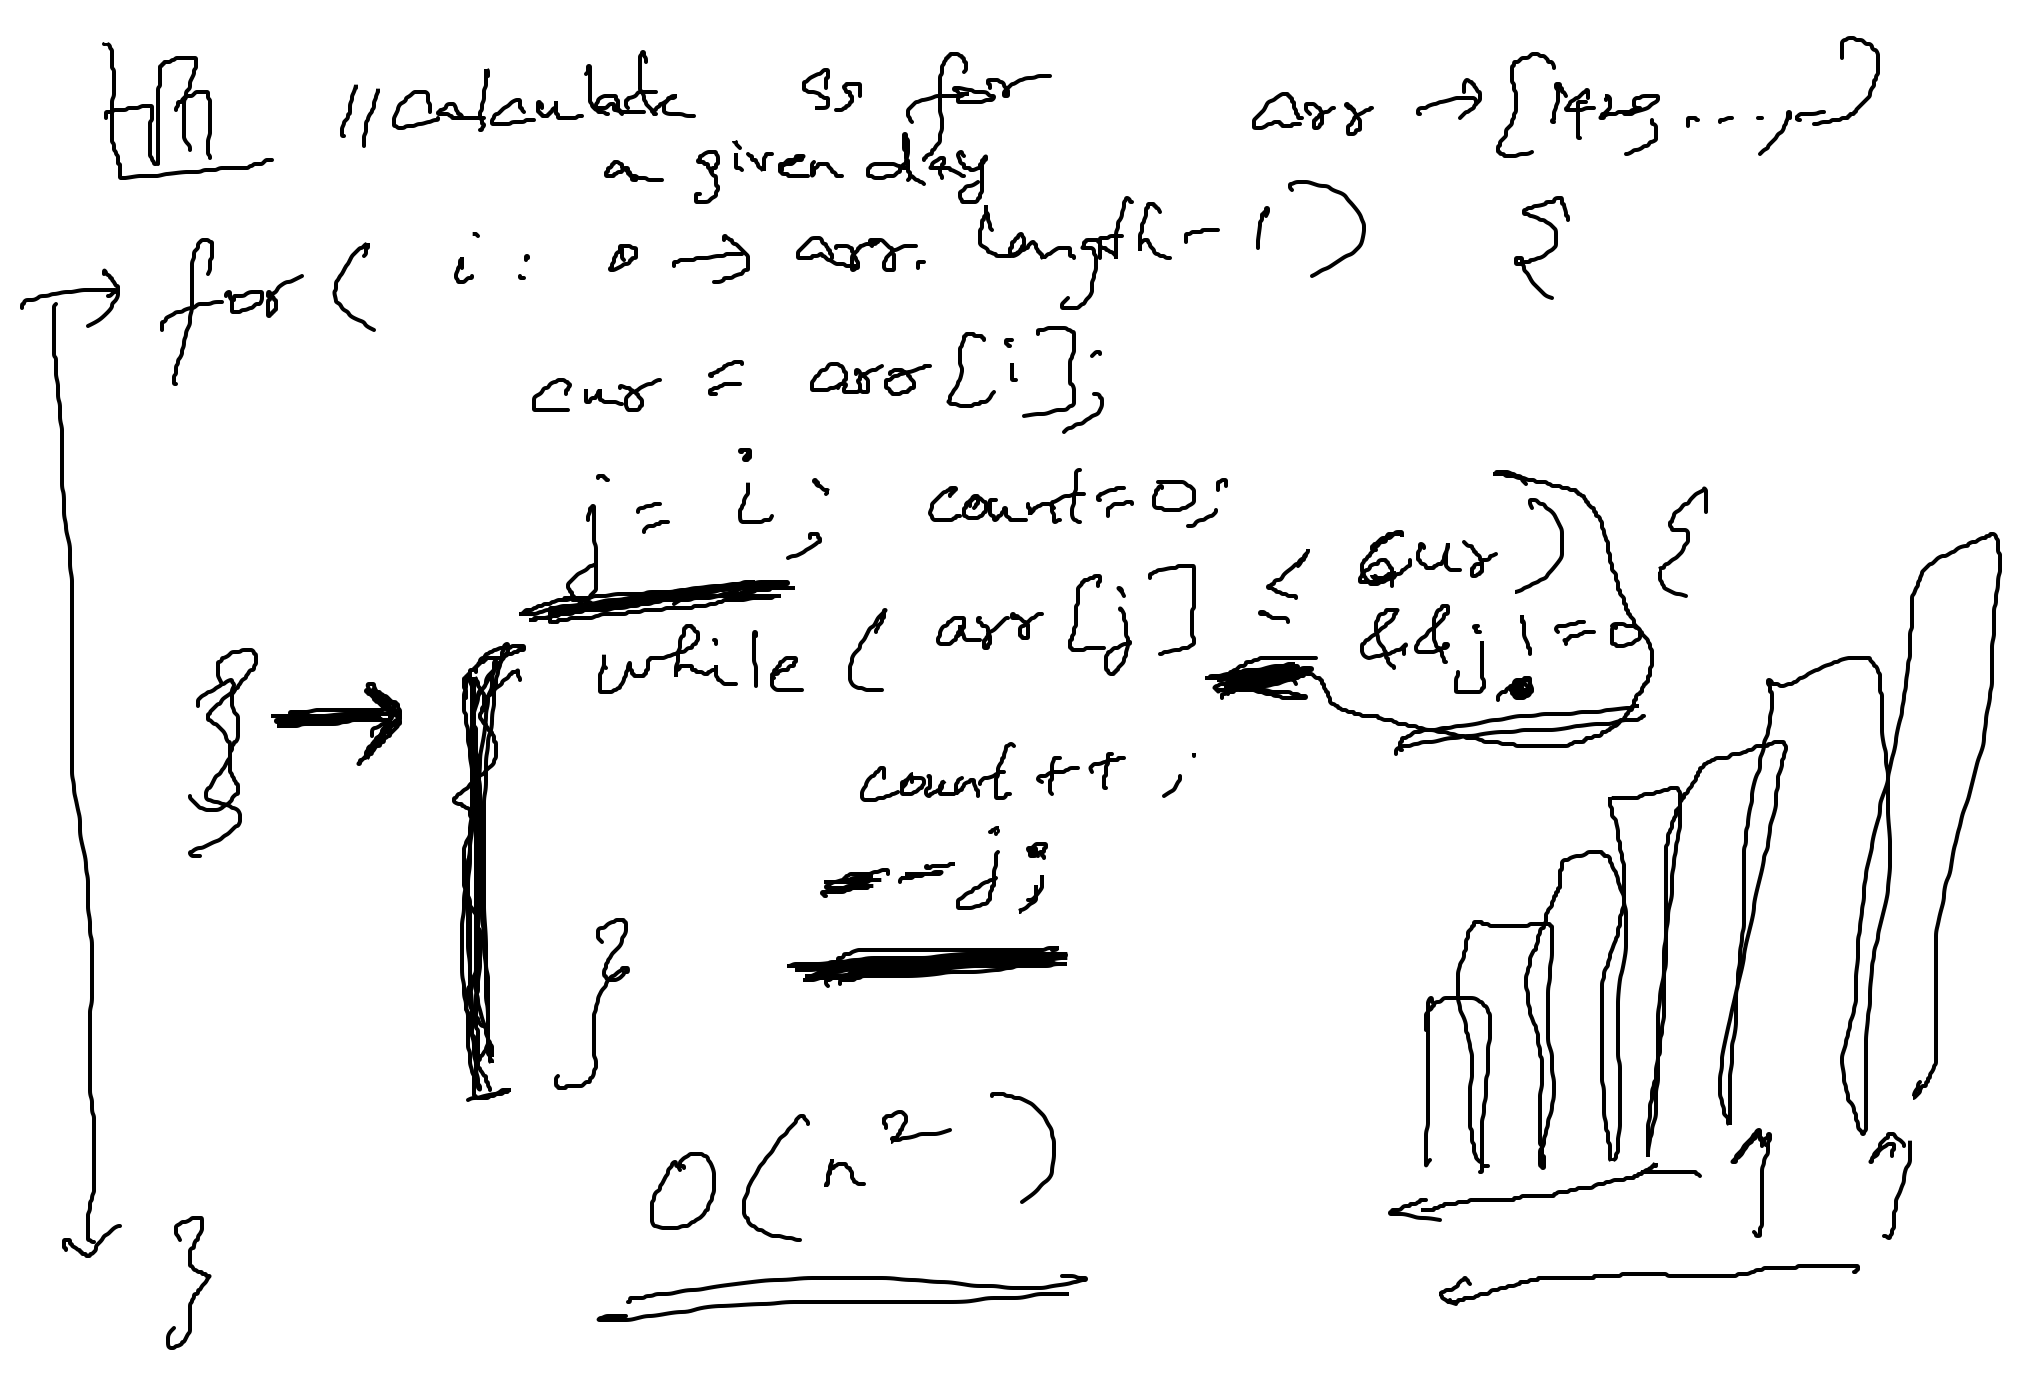 //Calculate SS for
a given day
arr → [142, ..., -)
for( i : 0 → arr.length-1) {
cur = arr[i];
j = i; count=0;
while ( arr[j] ≤ cur)
&& j != 0 {
count++;
--j;
}
O(n²)
}